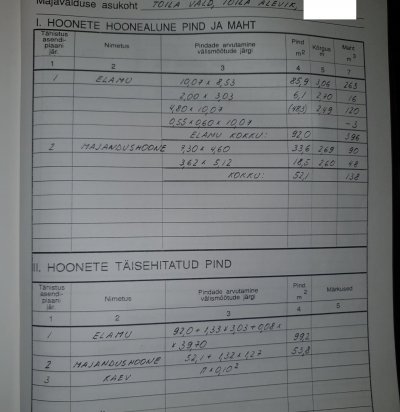 Majavalduse asukoht TOILA VALD, TOILA ALEVIK,
I. HOONETE HOONEALUNE PIND JA MAHT
Tähistus asendi-plaani jär. Nimetus Pindade arvutamine välismõõtude järgi Pind m² Kõrgus Maht m³
1 2 3 4 5 7
1 ELAMU 10,07 x 8,53 85,9 3,06 263
2,00 x 3,03 6,1 2,70 16
4,80 x 10,07 (48,3) 2,49 120
0,55 x 0,60 x 10,07 -3
ELAMU KOKKU: 92,0 396
2 MAJANDUSHOONE 7,30 x 4,60 33,6 2,69 90
3,62 x 5,12 18,5 2,60 48
KOKKU: 52,1 138
II. HOONETE TÄISEHITATUD PIND
Tähistus asendi-plaani jär. Nimetus Pindade arvutamine välismõõtude järgi Pind m² Märkused
1 2 3 4 5
1 ELAMU 92,0 + 1,33 x 3,03 + 0,08 x
x 39,70 99,2
2 MAJANDUSHOONE 52,1 + 1,32 x 1,27 53,8
3 KAEV π x 0,10²